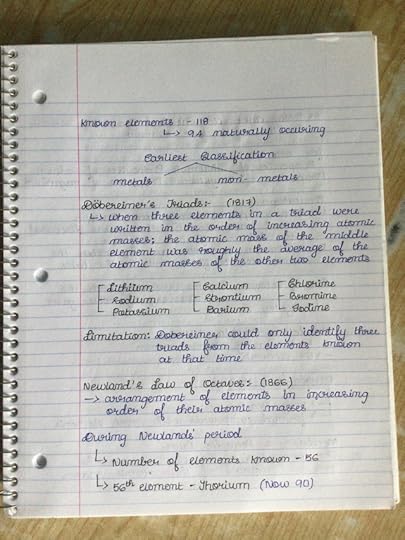 Known elements :- 118
↳ 94 naturally occuring
Earliest Classification
metals non-metals
Döbereiner's Triads:- (1817)
↳ when three elements in a triad were
written in the order of increasing atomic
masses; the atomic mass of the middle
element was roughly the average of the
atomic masses of the other two elements
Lithium Calcium Chlorine
Sodium Strontium Bromine
Potassium Barium Iodine
Limitation: Döbereiner could only identify three
triads from the elements known
at that time
Newland's Law of Octaves: (1866)
→ arrangement of elements in increasing
order of their atomic masses
During Newlands' period
↳ Number of elements known - 56
↳ 56th element - Thorium (Now 90)